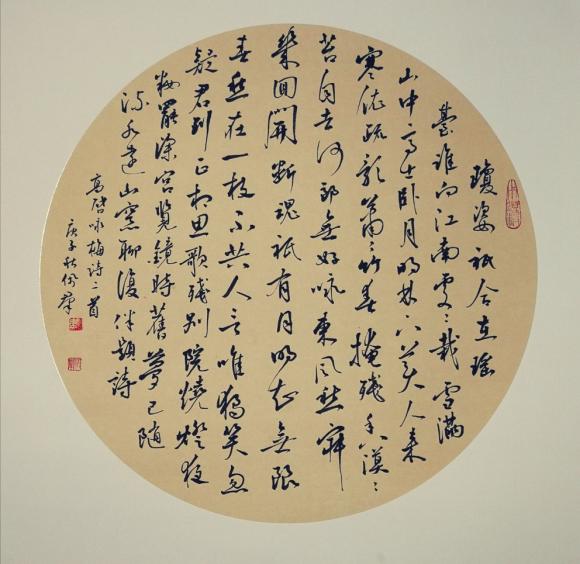 瓊姿祇合在瑶
臺誰向江南處々栽雪滿
山中高士卧月明林下美人来
寒依疏影蕭々竹春掩殘香漠々
苔自去何郎無好咏東風愁寂
幾囬開斷魂祇有月明知無限
春愁在一枝不共人言唯獨笑忽
疑君到正相思歌殘别院燒燈夜
妝罷深宫覽鏡時舊夢已随
流水遠山窓聊復伴題詩
高啓咏梅詩二首
庚子秋